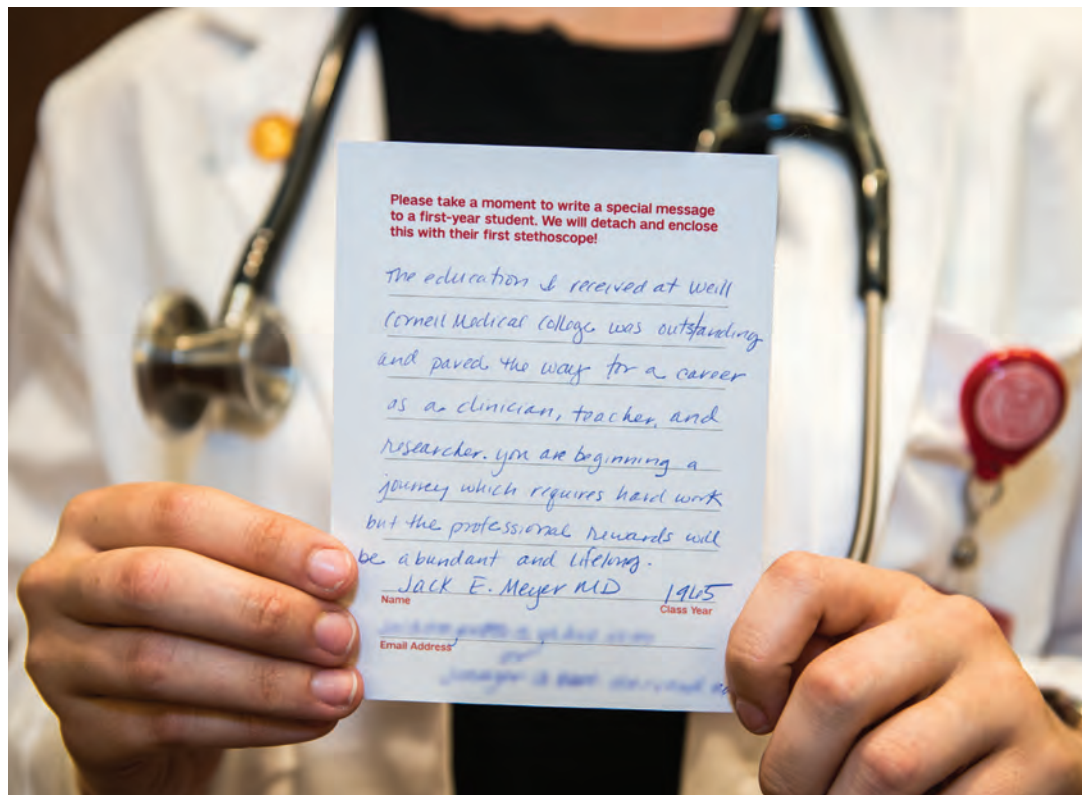 Please take a moment to write a special message
to a first-year student. We will detach and enclose
this with their first stethoscope!
The education I received at Weill
Cornell Medical College was outstanding
and paved the way for a career
as a clinician, teacher, and
researcher. you are beginning a
journey which requires hard work
but the professional rewards will
be abundant and lifelong.
Jack E. Meyer MD 1965
Name Class Year
Email Address